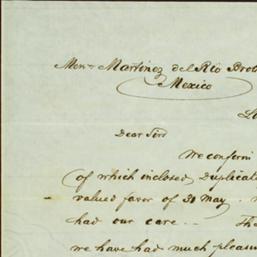 Mess Martinez del Rio Brot
Mexico
Dear Sirs
We confirm
of which inclosed duplicate
valued favor of 30 May
had our care -- Tha
we have had much pleasu